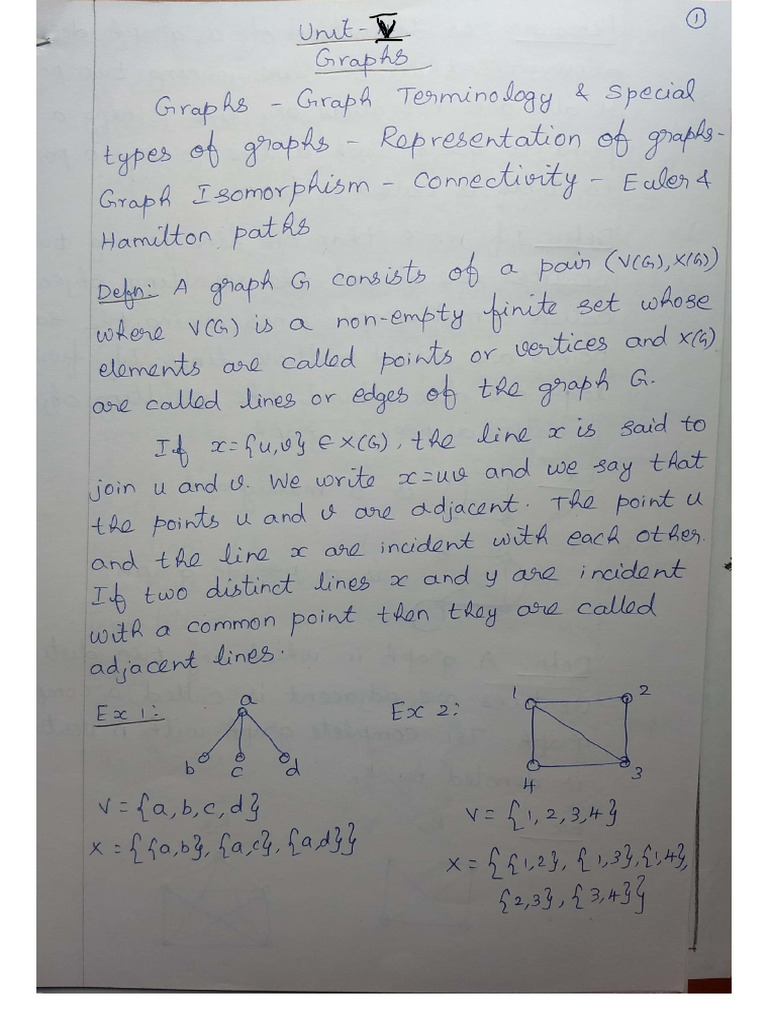 1
Unit-V
Graphs
Graphs - Graph Terminology & Special
types of graphs - Representation of graphs-
Graph Isomorphism - Connectivity - Euler &
Hamilton paths
Defn: A graph G consists of a pair (V(G), X(G))
where V(G) is a non-empty finite set whose
elements are called points or vertices and X(G)
are called lines or edges of the graph G.
If x={u,v} ∈ X(G), the line x is said to
join u and v. We write x=uv and we say that
the points u and v are adjacent. The point u
and the line x are incident with each other.
If two distinct lines x and y are incident
with a common point then they are called
adjacent lines.
Ex 1:
a
b c d
V = {a, b, c, d}
X = {{a,b}, {a,c}, {a,d}}
Ex 2:
1 2
4 3
V = {1, 2, 3, 4}
X = {{1,2}, {1,3}, {1,4},
{2,3}, {3,4}}